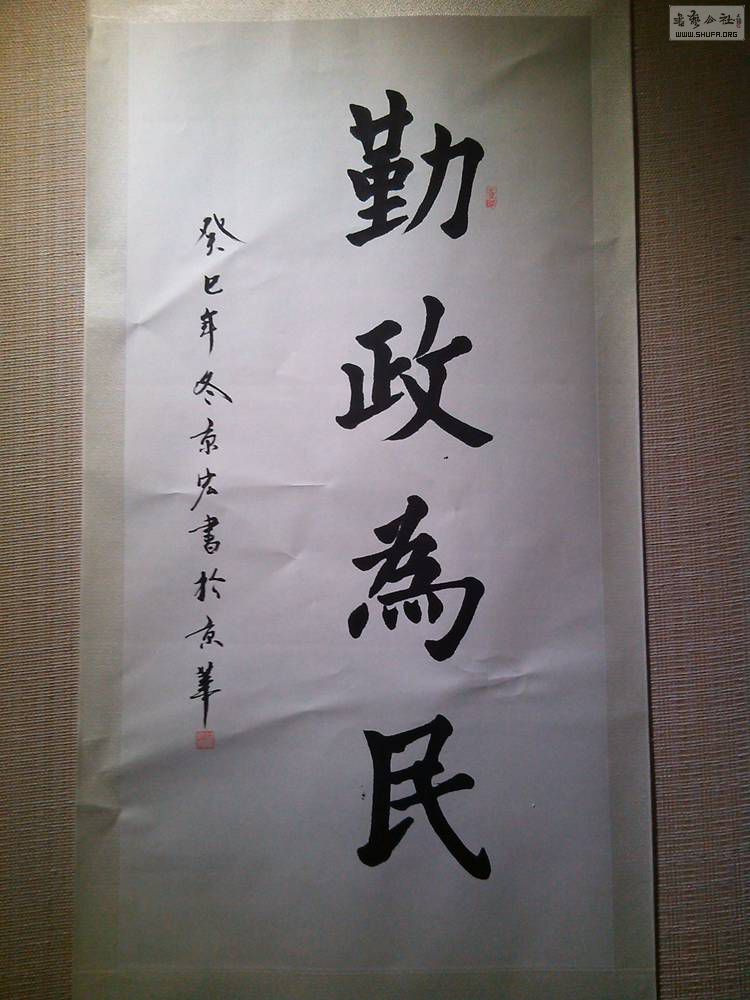 勤政為民
癸巳年冬京宏書於京華
WWW.SHUFA.ORG